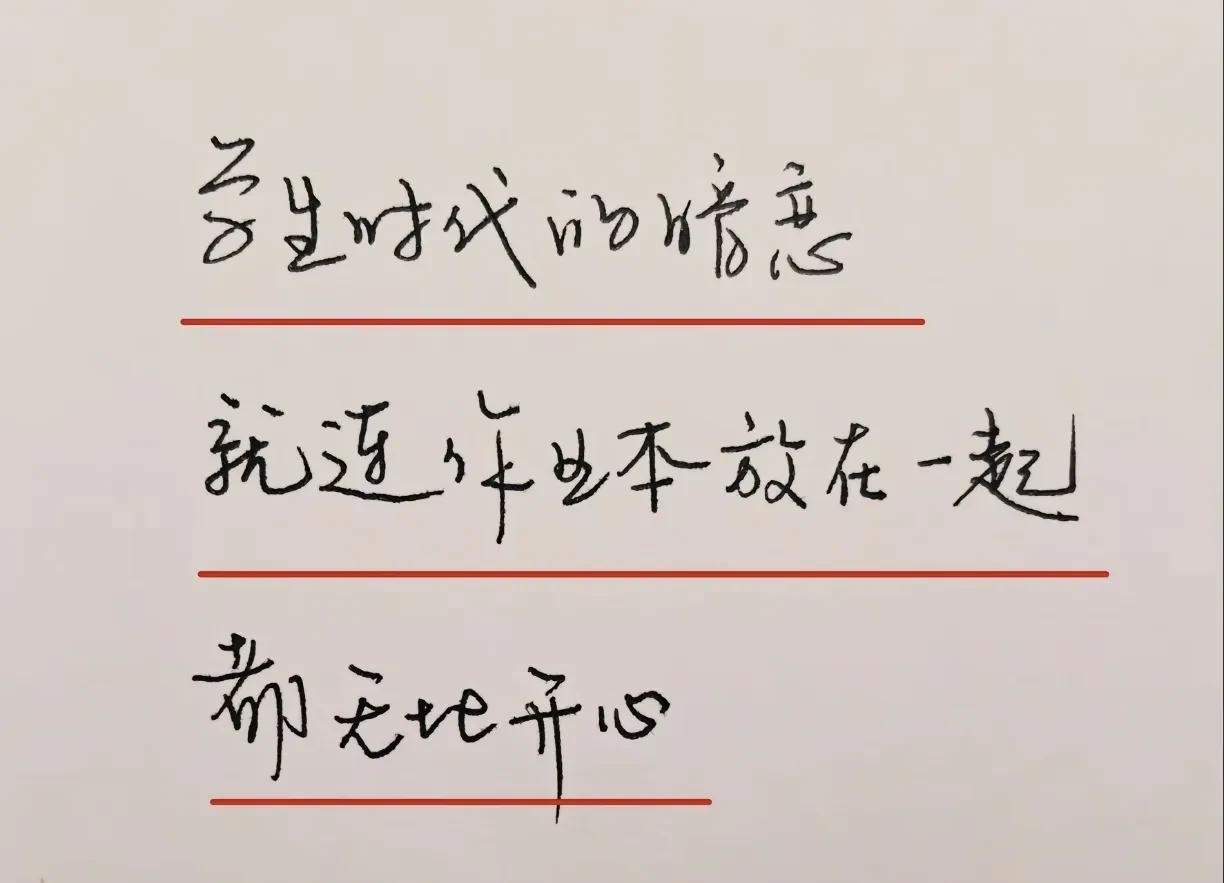 学生时代的暗恋
就连作业本放在一起
都无比开心